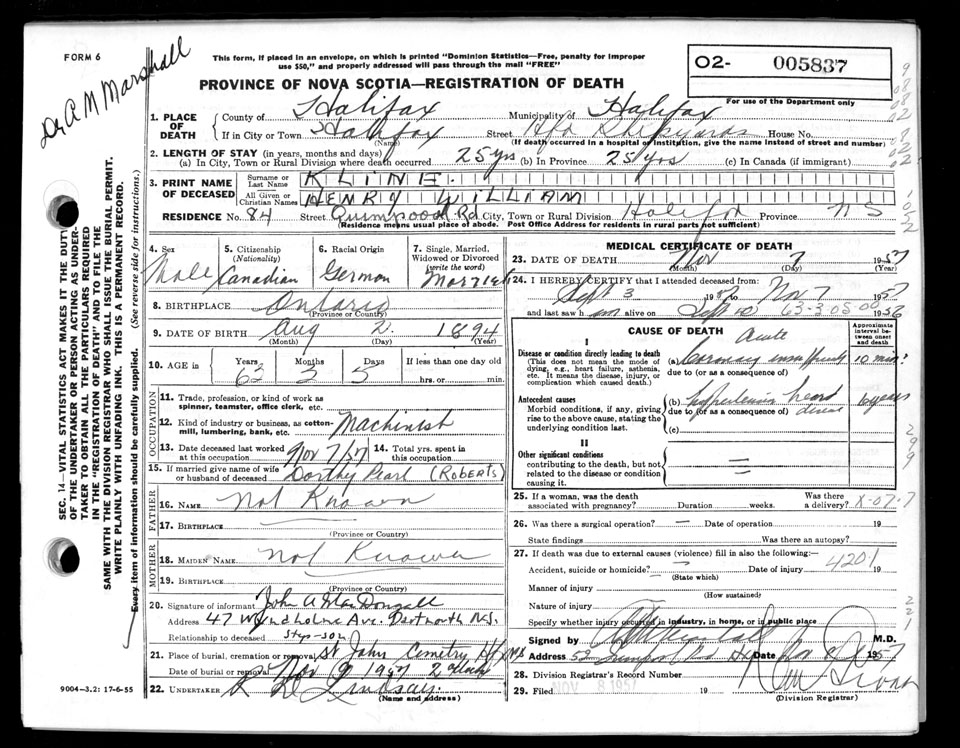 FORM 6
This form, if placed in an envelope, on which is printed "Dominion Statistics—Free, penalty for improper
use $50," and properly addressed will pass through the mail "FREE"
PROVINCE OF NOVA SCOTIA—REGISTRATION OF DEATH
O2- 005837
For use of the Department only
Dr A M Marshall
SEC. 14—VITAL STATISTICS ACT MAKES IT THE DUTY
OF THE UNDERTAKER OR PERSON ACTING AS UNDER-
TAKER TO OBTAIN ALL THE PARTICULARS REQUIRED
IN THE "REGISTRATION OF DEATH" AND TO FILE THE
SAME WITH THE DIVISION REGISTRAR WHO SHALL ISSUE THE BURIAL PERMIT.
WRITE PLAINLY WITH UNFADING INK. THIS IS A PERMANENT RECORD.
Every item of information should be carefully supplied. (See reverse side for instructions.)
1. PLACE OF DEATH County of Halifax Municipality of Halifax
If in City or Town Halifax Street Hfx Shipyards House No.
(Name) (If death occurred in a hospital or institution, give the name instead of street and number)
2. LENGTH OF STAY (in years, months and days)
(a) In City, Town or Rural Division where death occurred 25 yrs (b) In Province 25 yrs (c) In Canada (if immigrant)
3. PRINT NAME OF DECEASED Surname or Last Name KLINE.
All Given or Christian Names HENRY WILLIAM
RESIDENCE No. 84 Street Quinpool Rd City, Town or Rural Division Halifax Province N S
(Residence means usual place of abode. Post Office Address for residents in rural parts not sufficient)
4. Sex 5. Citizenship (Nationality) 6. Racial Origin 7. Single, Married, Widowed or Divorced (write the word)
Male Canadian German Married
8. BIRTHPLACE Ontario
(Province or Country)
9. DATE OF BIRTH Aug 2. 1894
(Month) (Day) (Year)
10. AGE in Years Months Days If less than one day old
63 3 5 hrs. or min.
OCCUPATION
11. Trade, profession, or kind of work as
spinner, teamster, office clerk, etc.
12. Kind of industry or business, as cotton-
mill, lumbering, bank, etc. Machinist
13. Date deceased last worked at this occupation Nov 7/57 14. Total yrs. spent in this occupation
15. If married give name of wife
or husband of deceased Dorthy Pearl (Roberts)
FATHER
16. NAME Not Known
17. BIRTHPLACE
(Province or Country)
MOTHER
18. MAIDEN NAME Not Known
19. BIRTHPLACE
(Province or Country)
20. Signature of informant John A MacDougall
Address 47 Wyndholme Ave. Dartmouth N.S.
Relationship to deceased Step-son
21. Place of burial, cremation or removal St Johns Cemetry Hfx NS
Date of burial or removal Nov 9 1957
22. UNDERTAKER Lindsay.
(Name and address)
9004-3.2: 17-6-55
MEDICAL CERTIFICATE OF DEATH
23. DATE OF DEATH Nov 7 1957
(Month) (Day) (Year)
24. I HEREBY CERTIFY that I attended deceased from:
Sept 3 1957 to Nov 7 1957
and last saw h im alive on Sept 1956
63-3-05-00
CAUSE OF DEATH
Approximate interval between onset and death
I
Disease or condition directly leading to death
(This does not mean the mode of dying, e.g., heart failure, asthenia, etc. It means the disease, injury, or complication which caused death.)
(a) Acute Coronary insufficiency 10 min.
due to (or as a consequence of)
Antecedent causes
Morbid conditions, if any, giving rise to the above cause, stating the underlying condition last.
(b) hypertension heart disease 6 years
due to (or as a consequence of)
(c)
II
Other significant conditions
contributing to the death, but not related to the disease or condition causing it.
25. If a woman, was the death associated with pregnancy? Duration weeks. Was there a delivery? X-07-7
26. Was there a surgical operation? — Date of operation 19
State findings Was there an autopsy?
27. If death was due to external causes (violence) fill in also the following:
Accident, suicide or homicide? Date of injury 19
(State which)
4201
Manner of injury
(How sustained)
Nature of injury
Specify whether injury occurred in industry, in home, or in public place
Signed by A M Marshall M.D.
Address 52 Quinpool Rd Hx Date Nov 1957
28. Division Registrar's Record Number
29. Filed NOV 8 1957 19
(Division Registrar)